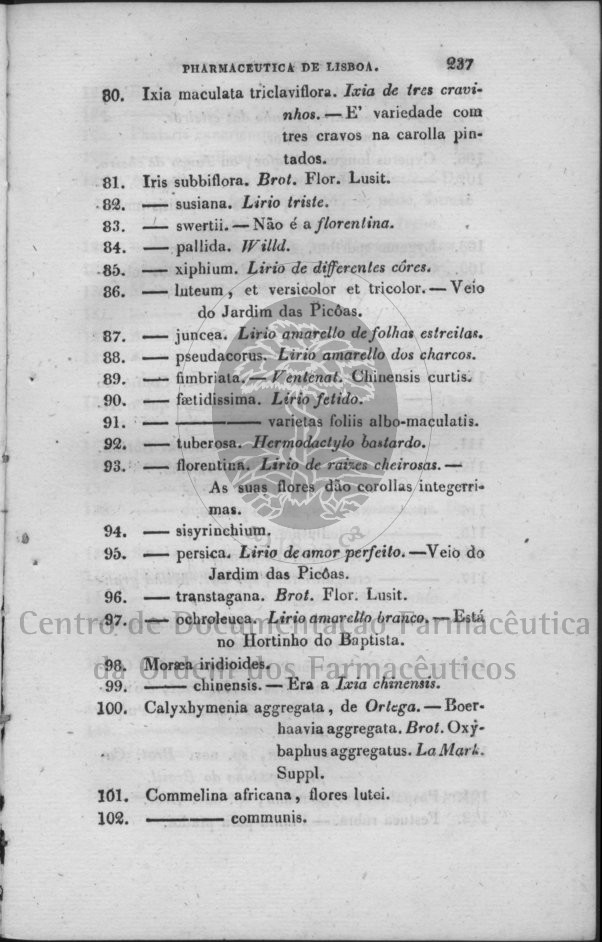 PHARMACEUTICA DE LISBOA. 237
80. Ixia maculata triclaviflora. Ixia de tres cravi-
nhos. — E' variedade com
tres cravos na carolla pin-
tados.
81. Iris subbiflora. Brot. Flor. Lusit.
82. — susiana. Lirio triste.
83. — swertii. — Não é a florentina.
84. — pallida. Willd.
85. — xiphium. Lirio de differentes côres.
86. — luteum, et versicolor et tricolor. — Veio
do Jardim das Picôas.
87. — juncea. Lirio amarello de folhas estreitas.
88. — pseudacorus. Lirio amarello dos charcos.
89. — fimbriata. — Ventenat. Chinensis curtis.
90. — fætidissima. Lirio fetido.
91. — ——— varietas foliis albo-maculatis.
92. — tuberosa. Hermodactylo bastardo.
93. — florentina. Lirio de raizes cheirosas. —
As suas flores dão corollas integerri-
mas.
94. — sisyrinchium.
95. — persica. Lirio de amor perfeito. — Veio do
Jardim das Picôas.
96. — transtagana. Brot. Flor. Lusit.
97. — ochroleuca. Lirio amarello branco. — Está
no Hortinho do Baptista.
Centro de Documentação Farmacêutica
98. Moræa iridioides.
da Ordem dos Farmacêuticos
99. —— chinensis. — Era a Ixia chinensis.
100. Calyxhymenia aggregata, de Ortega. — Boer-
haavia aggregata. Brot. Oxy-
baphus aggregatus. La Mark.
Suppl.
101. Commelina africana, flores lutei.
102. ——— communis.